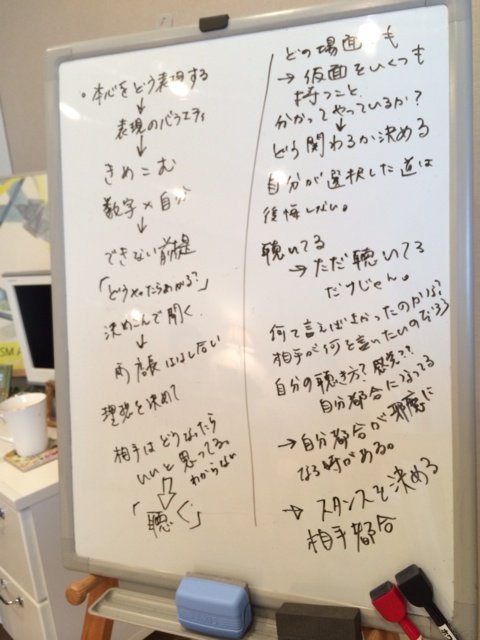 ・本心をどう表現する
↓
表現のバラエティ
↓
きめこむ
数字×自分
↓
できない前提
「どうやったらめがる?」
決めこんで聞く
↓
両店長はなし合い
理想を決めて
相手はどうなったら
いいと思ってる。
わからない
「聴く」
どの場面でも
→仮面をいくつも
持つこと
分かってやっているか?
↓
どう関わるか決める
自分が選択した道は
後悔しない。
聴いてる
→ただ聴いてる
だけじゃん。
何て言えばよかったのかな?
相手が何を言いたいのだろう
自分の聴き方?感覚??
自分都合になってる
→自分都合が邪魔に
なる時がある。
→スタンスを決める
相手都合
SMA